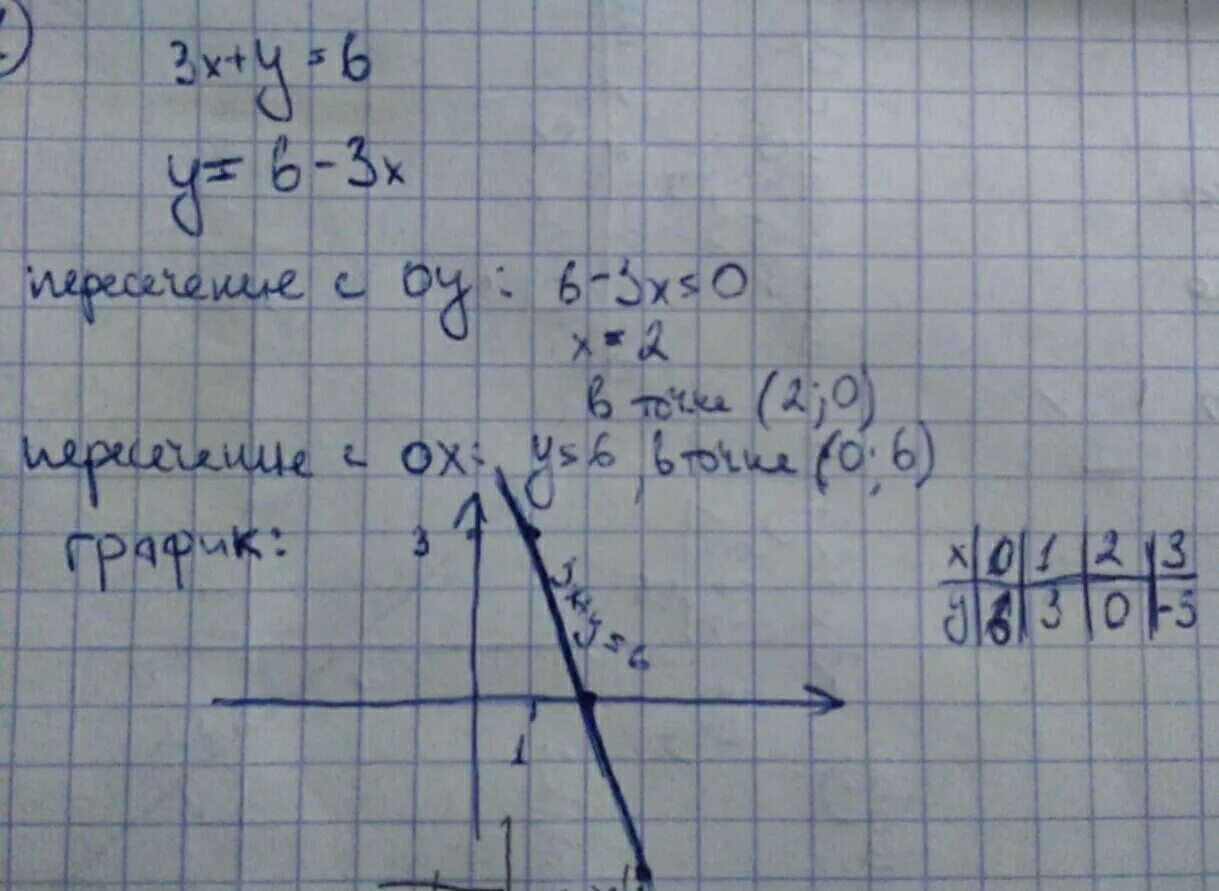 3x+y=6
y=6-3x
пересечение с Oy: 6-3x=0
x=2
в точке (2;0)
пересечение с OX: y=6, в точке (0;6)
график:
3
3x+y=6
1
x|0|1|2|3
y|6|3|0|-3